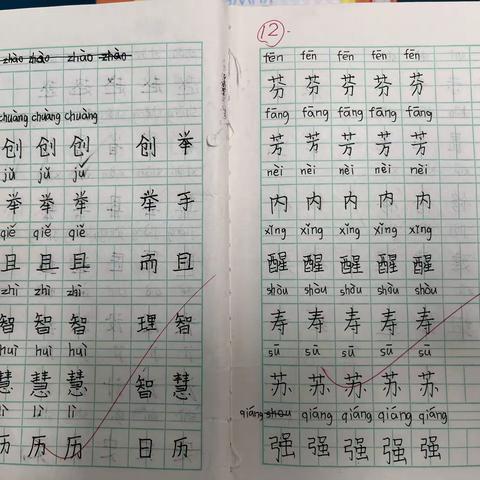 zhào zhào zhào zhào
chuàng chuàng chuàng
创 创 创 创 举
jǔ jǔ jǔ
举 举 举 举 手
qiě qiě qiě
且 且 且 而 且
zhì zhì zhì
智 智 智 理 智
huì huì huì
慧 慧 慧 智 慧
lì lì lì
历 历 历 日 历
12
fēn fēn fēn fēn fēn
芬 芬 芬 芬 芬
fāng fāng fāng fāng fāng
芳 芳 芳 芳 芳
nèi nèi nèi nèi nèi
内 内 内 内 内
xǐng xǐng xǐng xǐng xǐng
醒 醒 醒 醒 醒
shòu shòu shòu shòu shòu
寿 寿 寿 寿 寿
sū sū sū sū sū
苏 苏 苏 苏 苏
qiáng shou qiáng qiáng qiáng qiáng
强 强 强 强 强